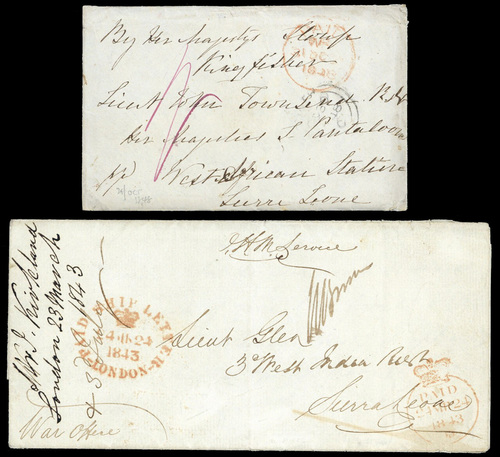 By Her Majestys Sloop
Kingfisher
Lieut John Townsend R.N.
Her Majesties S. Pantaloon
West African Station
Sierri Leone
PAID
H.M. Service
Lieut Glen
3d West India Regt
Sierra Leone
Kirkland
London 23 March 1843
War Office
PAID SHIP LETTER
24
1843
LONDON
PAID
24
1843